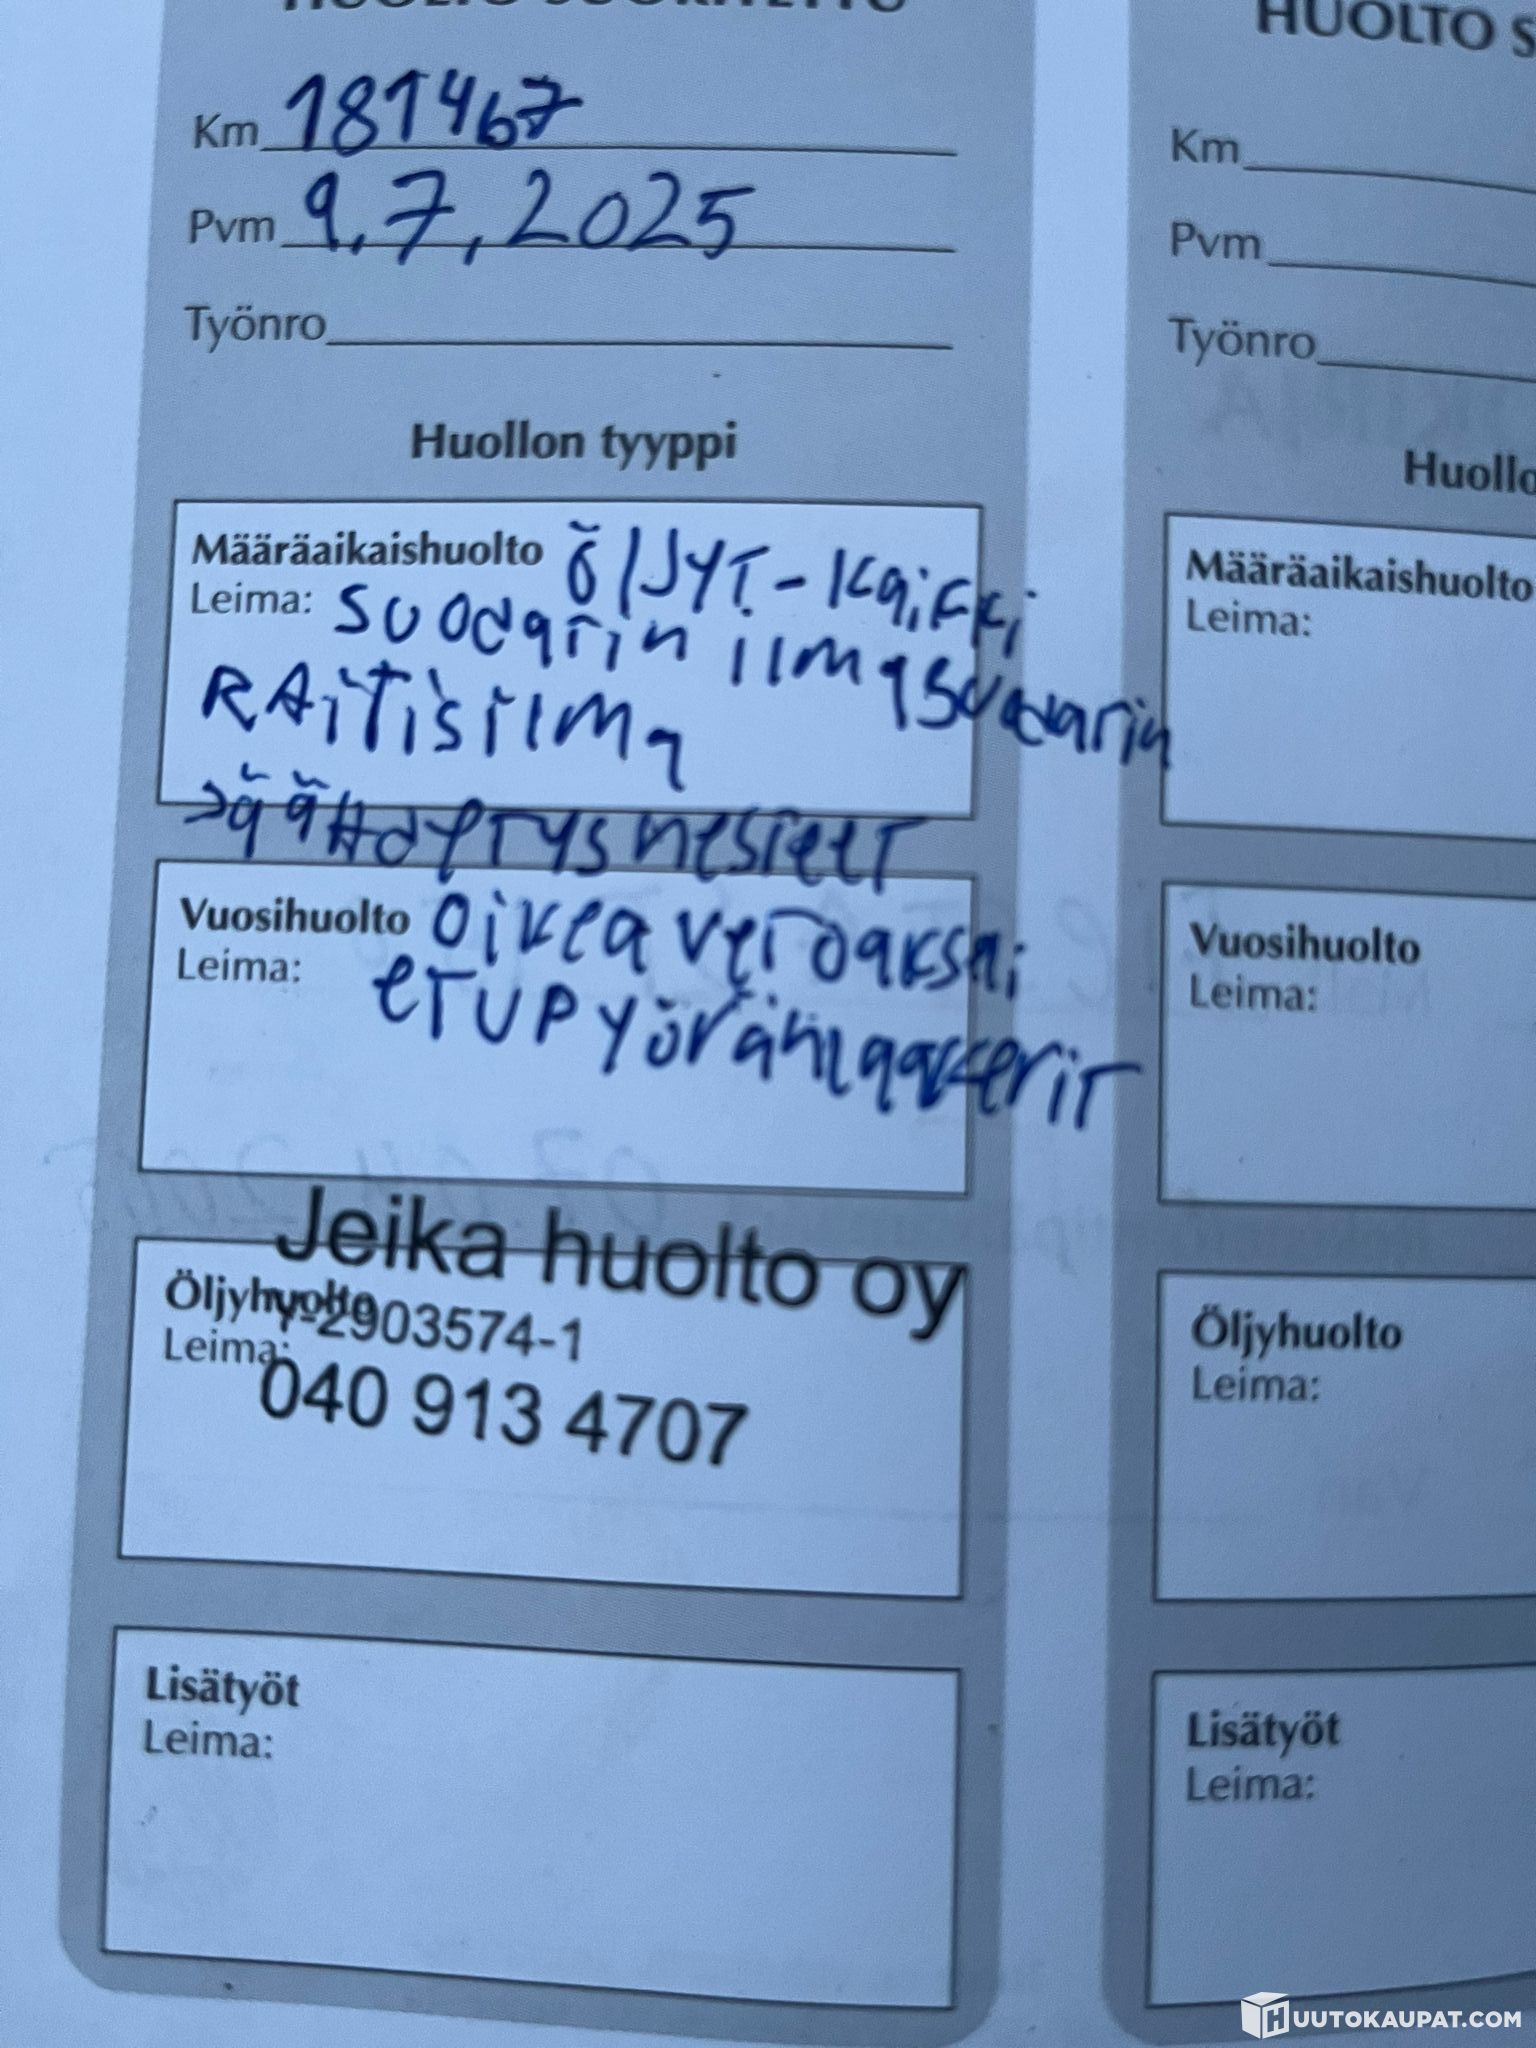 HUOLTO SUORITETTU
Km 181467
Pvm 9.7.2025
Työnro
Huollon tyyppi
Määräaikaishuolto ÖljyT - Kaikki
Leima: suodarin ilmasuodarin
RAiTisilma
jäähdytysnesteet
Vuosihuolto oikea vetoakseli
Leima: etupyöränlaakerit
Jeika huolto oy
Öljyhuolto Y-2903574-1
Leima: 040 913 4707
Lisätyöt
Leima:
HUOLTO S
Km
Pvm
Työnro
Huollo
Määräaikaishuolto
Leima:
Vuosihuolto
Leima:
Öljyhuolto
Leima:
Lisätyöt
Leima:
HUUTOKAUPAT.COM